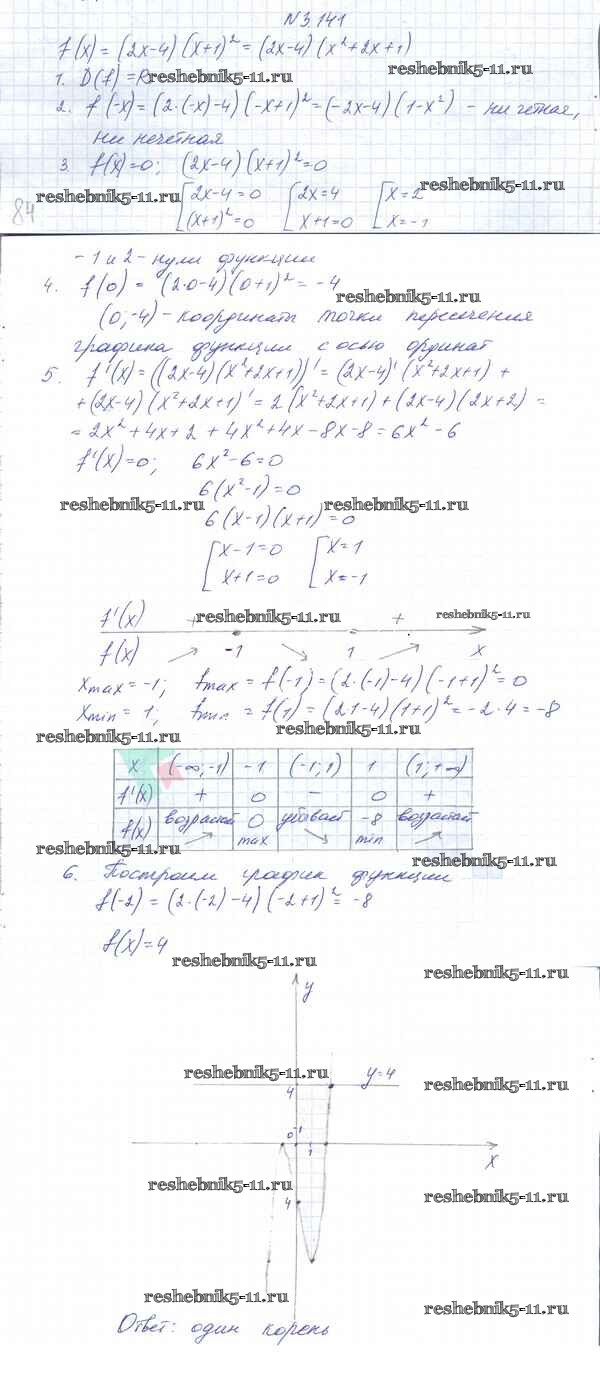 N 3.141
f(x) = (2x-4)(x+1)² = (2x-4)(x²+2x+1)
reshebnik5-11.ru
1. D(f) = R
reshebnik5-11.ru
2. f(-x) = (2·(-x)-4)(-x+1)² = (-2x-4)(1-x²) - ни четная,
ни нечетная
3. f(x)=0; (2x-4)(x+1)²=0
reshebnik5-11.ru
reshebnik5-11.ru
[2x-4=0 [2x=4 [x=2
(x+1)²=0 x+1=0 x=-1
84
-1 и 2 - нули функции
4. f(0) = (2·0-4)(0+1)² = -4
reshebnik5-11.ru
(0;-4) - координаты точки пересечения
графика функции с осью ординат
5. f'(x) = ((2x-4)(x²+2x+1))' = (2x-4)'(x²+2x+1) +
+(2x-4)(x²+2x+1)' = 2(x²+2x+1)+(2x-4)(2x+2) =
= 2x²+4x+2+4x²+4x-8x-8 = 6x²-6
f'(x)=0; 6x²-6=0
6(x²-1)=0
reshebnik5-11.ru reshebnik5-11.ru
6(x-1)(x+1)=0
[x-1=0 [x=1
x+1=0 x=-1
f'(x) + reshebnik5-11.ru + reshebnik5-11.ru
f(x) -1 1 x
xmax = -1; fmax = f(-1) = (2·(-1)-4)(-1+1)² = 0
xmin = 1; fmin = f(1) = (2·1-4)(1+1)² = -2·4 = -8
reshebnik5-11.ru
reshebnik5-11.ru
x (-∞;-1) -1 (-1;1) 1 (1;+∞)
f'(x) + 0 - 0 +
f(x) возрастает 0 убывает -8 возрастает
max min
reshebnik5-11.ru
reshebnik5-11.ru
6. Построим график функции
f(-2) = (2·(-2)-4)(-2+1)² = -8
f(x)=4
reshebnik5-11.ru
reshebnik5-11.ru
y
reshebnik5-11.ru
y=4
reshebnik5-11.ru
4
0 1
1
x
reshebnik5-11.ru
reshebnik5-11.ru
4
reshebnik5-11.ru
reshebnik5-11.ru
Ответ: один корень